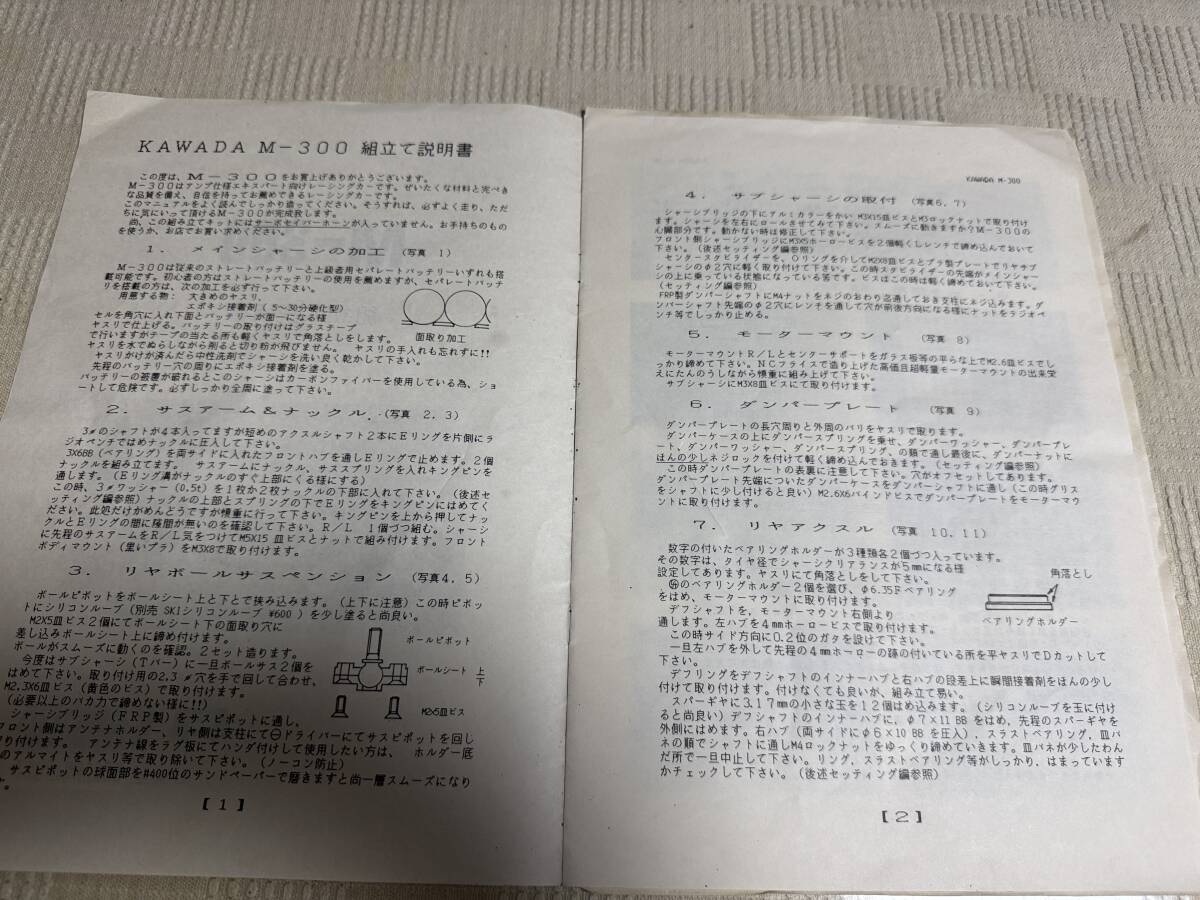 KAWADA M-300 組立て説明書
この度は、M-300をお買上げありがとうございます。
M-300はアンプ仕様エキスパート向けレーシングカーです。ぜいたくな材料と完ぺき
な品質を備え、自信を持ってお薦めできるレーシングカーです。
このマニュアルをよく読んでしっかり造ってください。そうすれば、必ずよく走り、ただ
ちに気にいって頂けるM-300が完成致します。
尚、この組み立てキットにはサーボセイバーホーンが入っていません。お手持ちのもの
を使うか、お店でお買い求めください。
1. メインシャーシの加工 (写真 1)
M-300は従来のストレートバッテリーと上級者用セパレートバッテリーいずれも搭
載可能です。初心者の方はストレートバッテリーの使用を薦めますが、セパレートバッテ
リを搭載の方は、次の加工を必ず行って下さい。
用意する物: 大きめのヤスリ、
エポキシ接着剤 (5~30分硬化型)
セルを角穴に入れ下面とバッテリーが面一になる様
ヤスリで仕上げる。バッテリーの取り付けはグラステープ
で行いますがテープの当たる所も軽くヤスリで角落としをします。
面取り加工
ヤスリを水でぬらしながら削ると切り粉が飛びません。 ヤスリの手入れも忘れずに!!
ヤスリがけが済んだら中性洗剤でシャーシを洗い良く乾かして下さい。
先程のバッテリー穴の周りにエポキシ接着剤を塗る。
バッテリーの被覆が破れるとこのシャーシはカーボンファイバーを使用している為、ショ
ートして危険です。必ずしっかり全周に塗って下さい。
2. サスアーム&ナックル (写真 2, 3)
3φのシャフトが4本入ってますが短めのアクスルシャフト2本にEリングを片側にラ
ジオペンチではめナックルに圧入して下さい。
3X6BB (ベアリング) を両サイドに入れたフロントハブを通しEリングで止めます。2個
ナックルを組み立てます。 サスアームにナックル、サススプリングを入れキングピンを
通します。(Eリング溝がナックルのすぐ上部にくる様にする)
この時、3φワッシャー(0.5t)を1枚か2枚ナックルの下部に入れて下さい。(後述セ
ッティング編参照) ナックルの上部とスプリングの下でEリングをキングピンにはめてく
ださい。此処だけがめんどうですが慎重に行って下さい。キングピンを上から押してナッ
クルとEリングの間に隙間が無いのを確認して下さい。R/L 1個づつ組む。シャーシ
に先程のサスアームをR/L気をつけてM5X15 皿ビスとナットで組み付けます。フロント
ボディマウント(黒いプラ)をM3X8で取り付けます。
3. リヤボールサスペンション (写真4, 5)
ボールピボットをボールシート上と下とで挟み込みます。(上下に注意) この時ピボッ
トにシリコンルーブ (別売 SK1シリコンルーブ #600) を少し塗ると尚良い。
M2X5皿ビス2個にてボールシート下の面取り穴に
差し込みボールシート上に締め付けます。
ボールがスムーズに動くのを確認。2セット造ります。
今度はサブシャーシ(Tバー)に一旦ボールサス2個を
はめて下さい。取り付け用の2.3φ穴を手で回して合わせ、
M2.3X6皿ビス(黄色のビス)で取り付けます。
(必要以上のバカ力で締めない様に!!)
ボールピボット
ボールシート 上
下
M2x5皿ビス
シャーシブリッジ(FRP製)をサスピボットに通し、
フロント側はアンテナホルダー、リヤ側は支柱にて⊖ドライバーにてサスピボットを回し
り付けます。 アンテナ線をラグ板にてハンダ付けして使用したい方は、 ホルダー底
のアルマイトをヤスリ等で取り除いて下さい。(ノーコン防止)
サスピボットの球面部を#400位のサンドペーパーで磨きますと尚一層スムーズになり
【1】
KAWADA M-300
4. サブシャーシの取付 (写真6, 7)
シャーシブリッジの下にアルミカラーをかい M3X15皿ビスとM3ロックナットで取り付け
ます。シャーシを左右にロールさせてみて下さい。スムーズに動きますか?M-300の
心臓部分です。動かない時は修正して下さい。
フロント側シャーシブリッジにM3X5ホーロービスを2個軽くしレンチで締め込んでおいて
下さい。(後述セッティング編参照)
センタースタビライザーを、Oリングを介してM2X8皿ビスとプラ製プレートでリヤサブ
シャーシのφ2穴に軽く取り付けて下さい。この時スタビライザーの先端がメインシャー
シの上に乗っている状態になっている筈です。ビスはこの時は軽く締めておいて下さい。
(セッティング編参照)
FRP製ダンパーシャフトにM4ナットをネジのおわり迄通しておき支柱にネジ込みます。ダ
ンパーシャフト先端のφ2穴にレンチを通して穴が前後方向になる様にナットをラジオペ
ンチ等でしっかり止める。
5. モーターマウント (写真 8)
モーターマウントR/Lとセンターサポートをガラス板等の平らな上でM2.6皿ビスでし
っかり締めて下さい。NCフライスで造り上げた高価且超軽量モーターマウントの出来栄
えにたんのうしながら慎重に組み上げて下さい。
サブシャーシにM3X8皿ビスにて取り付けます。
6. ダンパープレート (写真 9)
ダンパープレートの長穴周りと外周のバリをヤスリで取ります。
ダンパーケースの上にダンパースプリングを乗せ、ダンパーワッシャー、ダンパープレ
ート、ダンパーワッシャー、ダンパースプリング、の順で通し最後に、ダンパーナットに
ほんの少しネジロックを付けて軽く締め込んでおきます。(セッティング編参照)
この時ダンパープレートの表裏に注意して下さい。穴がオフセットしてあります。
ダンパープレート先端についたダンパーケースをダンパーシャフトに通し(この時グリス
をシャフトに少し付けると良い) M2.6X6バインドビスでダンパープレートをモーターマウ
ントに取り付けます。
7. リヤアクスル (写真 10, 11)
数字の付いたベアリングホルダーが3種類各2個づつ入っています。
その数字は、タイヤ径でシャーシクリアランスが5mmになる様
設定してあります。ヤスリにて角落としをして下さい。
のベアリングホルダー2個を選び、φ6.35Fベアリング
をはめ、モーターマウントに取り付けます。
デフシャフトを、モーターマウント右側より
通します。左ハブを4mmホーロービスで取り付けます。
この時サイド方向に0.2位のガタを設けて下さい。
角落とし
ベアリングホルダー
一旦左ハブを外して先程の4mmホーローの跡の付いている所を平ヤスリでDカットして
下さい。
デフリングをデフシャフトのインナーハブと右ハブの段差上に瞬間接着剤をほんの少し
付けて取り付けます。付けなくても良いが、組み立て易い。
スパーギヤに3.17mmの小さな玉を12個はめ込みます。(シリコンルーブを玉に付け
ると尚良い) デフシャフトのインナーハブに、φ7×11 BBをはめ、先程のスパーギヤを
外側にはめます。右ハブ(両サイドにφ6×10 BBを圧入)、スラストベアリング、皿バ
ネの順でシャフトに通しM4ロックナットをゆっくり締めていきます。皿バネが少したわん
だ所で一旦中止して下さい。リング、スラストベアリング等がしっかり、はまっています
かチェックして下さい。(後述セッティング編参照)
【2】